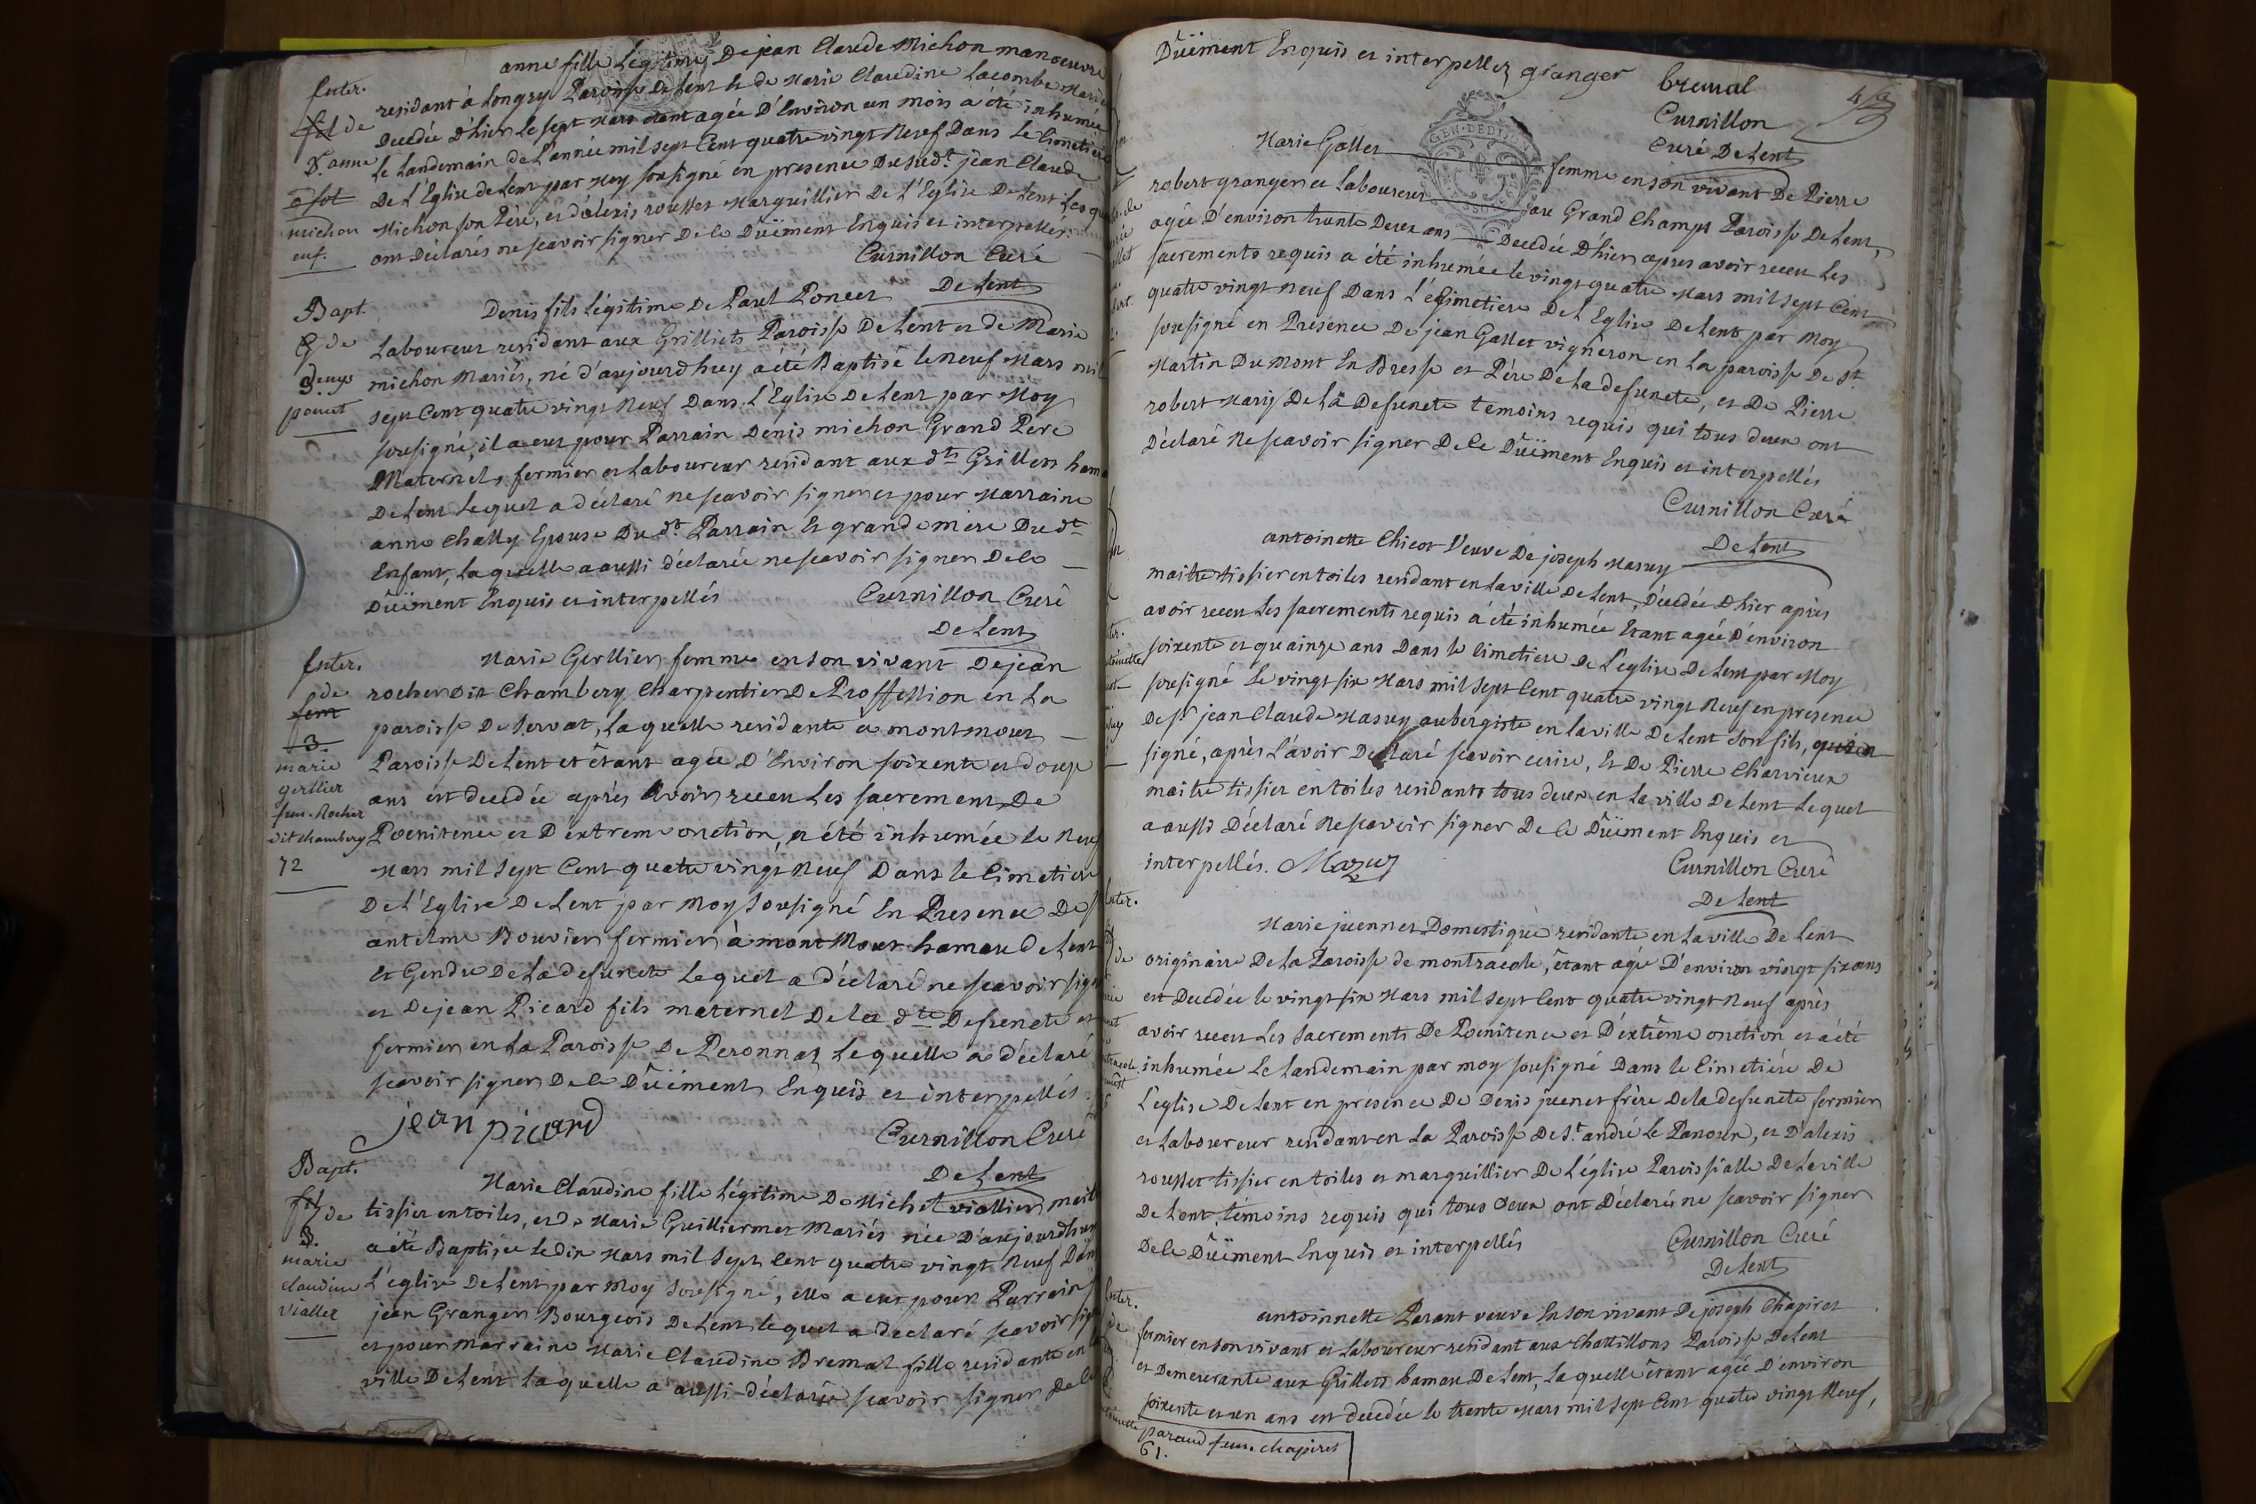 anne fille Legitime De jean Claude Michon manoeuvre
Enter.
residant à Longry Paroisse De Lent et de Marie Claudine Lacombe Mariés
de
Decedée D'hier Le sept Mars étant agée D'Environ un mois a été inhumée
D. anne
Le Landemain de L'année mil sept Cent quatre vingt Neuf Dans Le Cimetiere
michon
De L'Eglise de Lent par Moy sousigné en presence Dusud.t jean Claude
enf.
Michon son Père, et d'alexis rousset Marguillier De L'Eglise De Lent Les qu
ont Déclarés ne scavoir signer De ce Düement Enquis et interpellés.
Curnillon Curé
De Lent
Bapt.
Denis fils Légitime De Paul Poncet
de
Laboureur residant aux Grilliets Paroisse De Lent et de Marie
Denys
michon Mariés, né d'aujourdhuy a été Baptisé le neuf Mars mil
ponet
sept Cent quatre vingt Neuf Dans L'Eglise De Lent par Moy
sousigné, il a eut pour Parrain Denis michon Grand Pere
Maternel, fermier et Laboureur residant aux dts Grillets hama
De Lent Lequel a déclaré ne scavoir signer et pour Marraine
anne Chally Epouse Du dt Parrain Et grande mere Du dt
Enfant, La quelle a aussi déclarée ne scavoir signer De ce
Düement Enquis et interpellés
Curnillon Curé
De Lent
Enter.
Marie Gerllier femme en son vivant De jean
de
rocher Dit Chambery Charpentier De Proffession en La
fem
paroisse De Servat, La quelle residante a montmour
3.
marie
Paroisse De Lent et étant agée D'Environ soixente et douze
gerllier
ans est decedée après Avoir receu Les sacrement De
fem. Rocher
dit chambery
Poenitence et D'extreme onction, a été inhumée le Neuf
72
Mars mil sept Cent quatre vingt Neuf Dans le Cimetiere
De L'Eglise De Lent par Moy Sousigné En Presence De
antelme Bouvier fermier à mont Mour hamau de Lent
Et Gendre De La defuncte Lequel a déclaré ne scavoir sign
et De jean Picard fils maternel De La dte Defuncte et
fermier en La Paroisse De Peronnaz Le quelle a déclaré
scavoir signer De ce Düement Enquis et interpellés.
jean picard
Curnillon Curé
De Lent
Bapt.
Marie Claudine fille Légitime De Michel viallier mait
de
tissier en toiles, et de Marie Guilliermet Mariés née D'aujourdhuy
3.
a été Baptisée Le dix Mars mil sept cent quatre vingt Neuf Dan
marie
claudine
L'église De Lent par Moy Sousigné, elle a eut pour Parrain
viallet
jean Granger Bourgeois De Lent lequel a declaré scavoir sign
et pour Marraine Marie Claudine Bremal fille residante en
ville De Lent Laquelle a aussi déclarée scavoir signer De ce
Düement Enquis et interpellez granger bremal
Curnillon
Curé De Lent
GEN. DEDIJ
Marie Gallet femme en son vivant De Pierre
robert granger et Laboureur au Grand Champs Paroisse De Lent,
agée D'environ trente Deux ans Decedée D'hier apres avoir receu Les
sacrements requis a été inhumée le vingt quatre Mars mil sept Cent
quatre vingt Neuf Dans L'eCimetiere De L'Eglise De Lent par Moy
sousigné en Presence De jean Gallet vigneron en La paroisse De St
Martin Du Mont En Bresse et Pére De La defuncte, et De Pierre
robert Mary De La Defuncte temoins requis qui tous deux ont
Déclaré Ne scavoir signer De ce Düement Enquis et interpellés
Curnillon Curé
De Lent
antoinette Chicot Veuve De joseph Masuy
maitre tissier en toiles residant en La ville De Lent, Décedée D'hier après
avoir receu Les sacrements requis a été inhumée Etant agée D'environ
soixente et quainze ans Dans le Cimetiere De L'église De Lent par Moy
sousigné Le vingt six Mars mil sept Cent quatre vingt Neuf en presence
De sr jean Claude Masuy aubergiste en la ville De Lent son fils,
signé, après L'avoir Declaré scavoir ecrire, Et De Pierre Charvieux
maitre tissier en toiles residants tous deux en La ville De Lent Lequel
a aussi Déclaré Ne scavoir signer De ce Düement Enquis et
interpellés. Mazuy
Curnillon Curé
De Lent
Enter.
Marie juennet Domestique residante en La ville De Lent
de
originaire De La Paroisse de montracole, étant agée D'environ vingt six ans
est Decedée le vingt six Mars mil sept Cent quatre vingt Neuf après
avoir receu Les Sacrements De Poenitence et D'extrême onction et a été
inhumée Le Landemain par moy sousigné Dans le Cimetiére De
L'eglise De Lent en presence De Denis juenet frère De la defuncte fermier
et Laboureur residant en La Paroisse De St andré Le Panoux, et D'alexis
rousset tissier en toiles et marguillier De L'église Paroissialle De La ville
De Lent, témoins requis qui tous deux ont Déclaré ne scavoir signer
De ce Düement Enquis et interpellés
Curnillon Curé
De Lent
Enter.
antoinnette Parant veuve En son vivant De joseph Chapiret
de
fermier en son vivant et Laboureur residant aux Chattillons Paroisse De Lent
et Demeurante aux Grillets hamau De Lent, La quelle étant agée D'environ
soixente et un ans est decedée le trente Mars mil sept Cent quatre vingt Neuf,
paraud fem. chapiret
61.